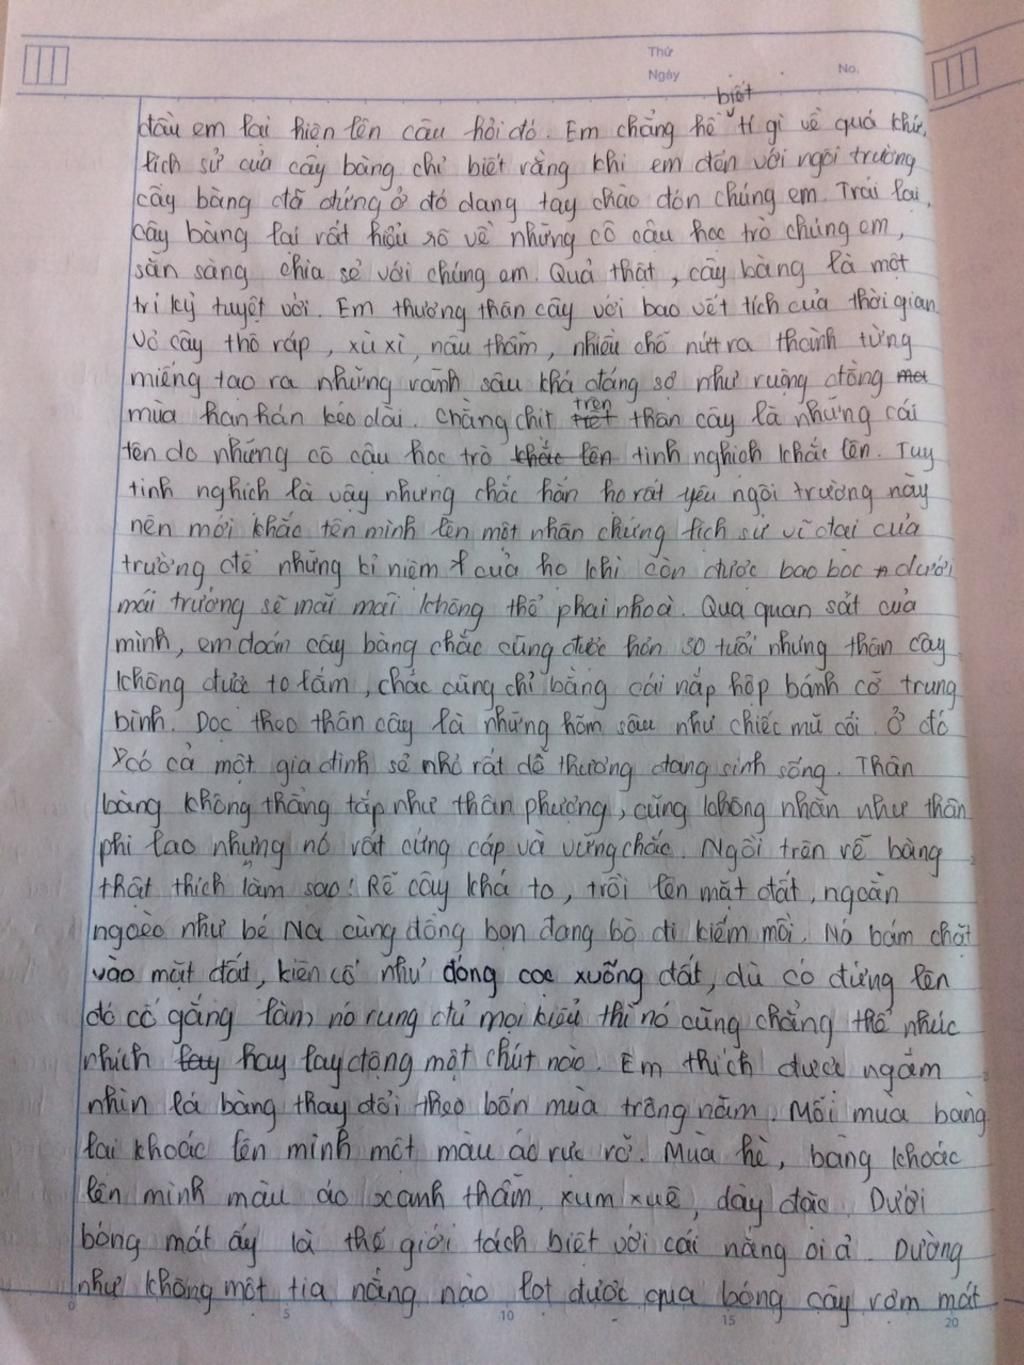 Thứ
Ngày
No.
biết
đầu em lại hiện lên câu hỏi đó. Em chẳng hề tí gì về quá khứ,
lịch sử của cây bàng chỉ biết rằng khi em đến với ngôi trường
cây bàng đã đứng ở đó dang tay chào đón chúng em. Trái lại,
cây bàng lại rất hiểu rõ về những cô cậu học trò chúng em,
sẵn sàng chia sẻ với chúng em. Quả thật, cây bàng là một
tri kỷ tuyệt vời. Em thương thân cây với bao vết tích của thời gian
vỏ cây thô ráp, xù xì, nâu thẫm, nhiều chỗ nứt ra thành từng
miếng tạo ra những rãnh sâu khá đáng sợ như ruộng đồng
mùa hạn hán kéo dài. Chằng chịt trên thân cây là những cái
tên do những cô cậu học trò khắc lên tinh nghịch khắc lên. Tuy
tinh nghịch là vậy nhưng chắc hẳn họ rất yêu ngôi trường này
nên mới khắc tên mình lên một nhân chứng lịch sử vĩ đại của
trường để những kỉ niệm của họ khi còn được bao bọc dưới
mái trường sẽ mãi mãi không thể phai nhoà. Qua quan sát của
mình, em đoán cây bàng chắc cũng được hơn 30 tuổi nhưng thân cây
không được to lắm, chắc cũng chỉ bằng cái nắp hộp bánh cỡ trung
bình. Dọc theo thân cây là những hõm sâu như chiếc mũ cối. Ở đó
có cả một gia đình sẻ nhỏ rất dễ thương đang sinh sống. Thân
bàng không thẳng tắp như thân phượng, cũng không nhẵn như thân
phi lao nhưng nó rất cứng cáp và vững chắc. Ngồi trên rễ bàng
thật thích làm sao! Rễ cây khá to, trồi lên mặt đất, ngoằn
ngoèo như bé Na cùng đồng bọn đang bò đi kiếm mồi. Nó bám chặt
vào mặt đất, kiên cố như đóng cọc xuống đất, dù có đứng lên
đó cố gắng làm nó rung đủ mọi kiểu thì nó cũng chẳng thể nhúc
nhích lay hay lay động một chút nào. Em thích được ngắm
nhìn lá bàng thay đổi theo bốn mùa trong năm. Mỗi mùa bàng
lại khoác lên mình một màu áo rực rỡ. Mùa hè, bàng khoác
lên mình màu áo xanh thẫm, xum xuê, dày đặc. Dưới
bóng mát ấy là thế giới tách biệt với cái nắng oi ả. Dường
như không một tia nắng nào lọt được qua bóng cây rợm mát
0 5 10 15 20